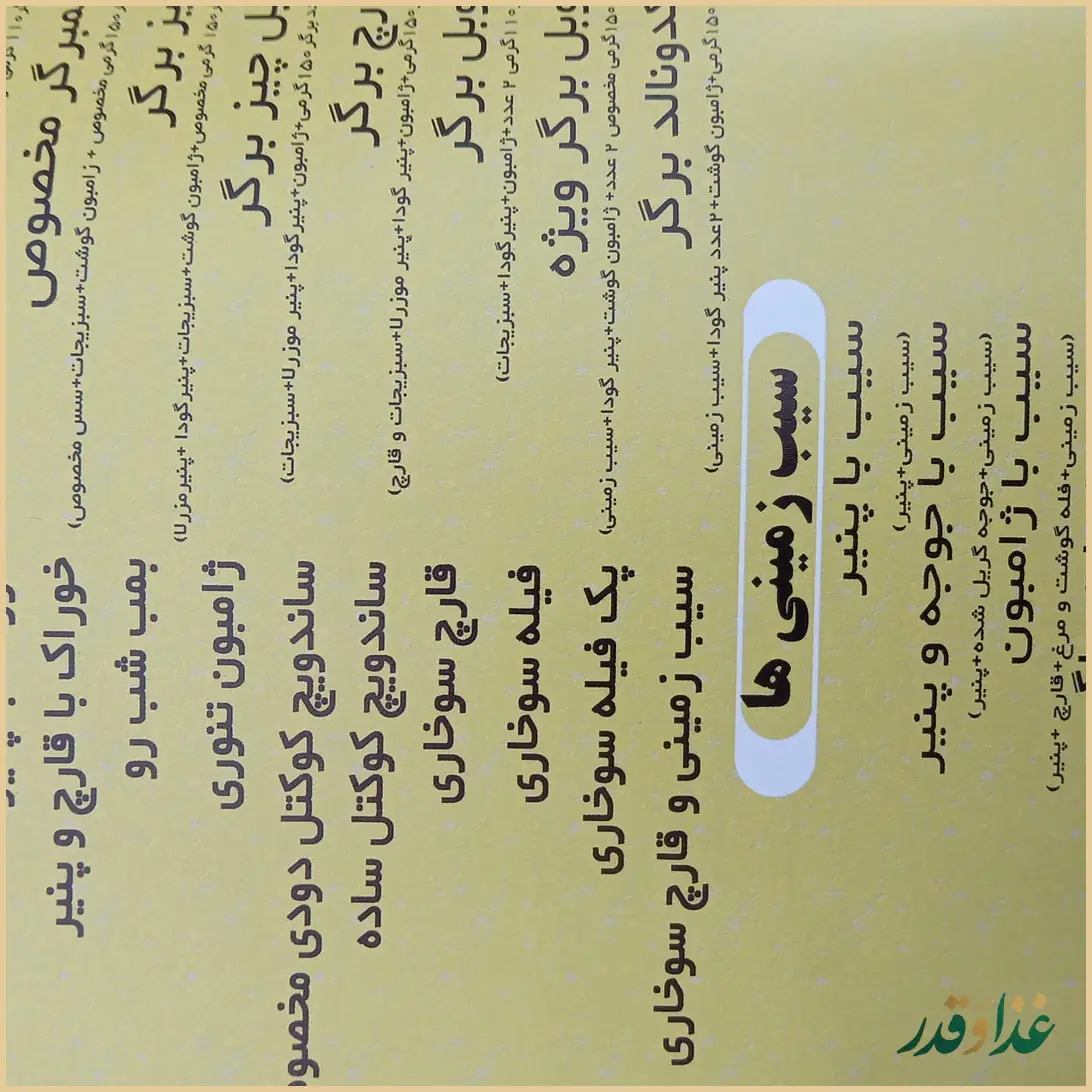 مخصوص
گرمی مخصوص + ژامبون گوشت+سبزیجات+سس مخصوص)
برگر
گرمی مخصوص+ژامبون گوشت+سبزیجات+پنیرگودا +پنیرمزرلا)
چیز برگر
۱۵۰گرمی+ژامبون+پنیرگودا+پنیر موزرلا+سبزیجات)
برگر
گرمی+ژامبون+پنیر گودا+پنیر موزرلا+سبزیجات و قارچ)
برگر
گرمی ۲ عدد+ژامبون+پنیرگودا+سبزیجات)
برگر ویژه
گرمی مخصوص ۲ عدد+ ژامبون گوشت+پنیر گودا+سیب زمینی)
برگر
گرمی+ژامبون گوشت+۲عدد پنیر گودا+سیب زمینی)
خوراک با قارچ و پنیر
بمب شب رو
ژامبون تنوری
ساندویچ کوکتل دودی
ساندویچ کوکتل ساده
قارچ سوخاری
فیله سوخاری
پک فیله سوخاری
سیب زمینی و قارچ سوخاری
سیب زمینی ها
سیب با پنیر
(سیب زمینی+پنیر)
سیب با جوجه و پنیر
(سیب زمینی+جوجه گریل شده+پنیر)
سیب با ژامبون
(سیب زمینی+فله گوشت و مرغ+قارچ +پنیر)
غذا و قدر